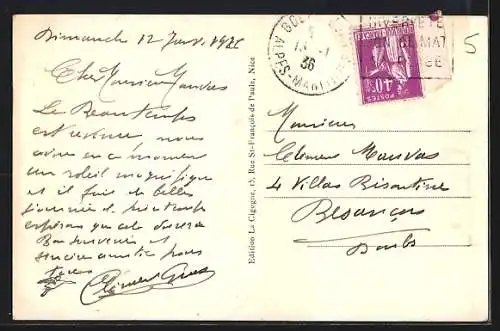 Dimanche 12 Janv. 1936
Cher Monsieur Mauvas
Le Beau temps
est revenu nous
avons en ce moment
un soleil magnifique
et il fait de belles
journées et
espérons que cela durera
Bon souvenir et
pour
tous
Clément
Edition La Cigogne, 13, Rue St-François de Paule, Nice
ALPES-MARITIMES
36
HIVER ET ÉTÉ
POSTES
40c
5
Monsieur
Clément Mauvas
4 Villas Bisontine
Besançon
Doubs